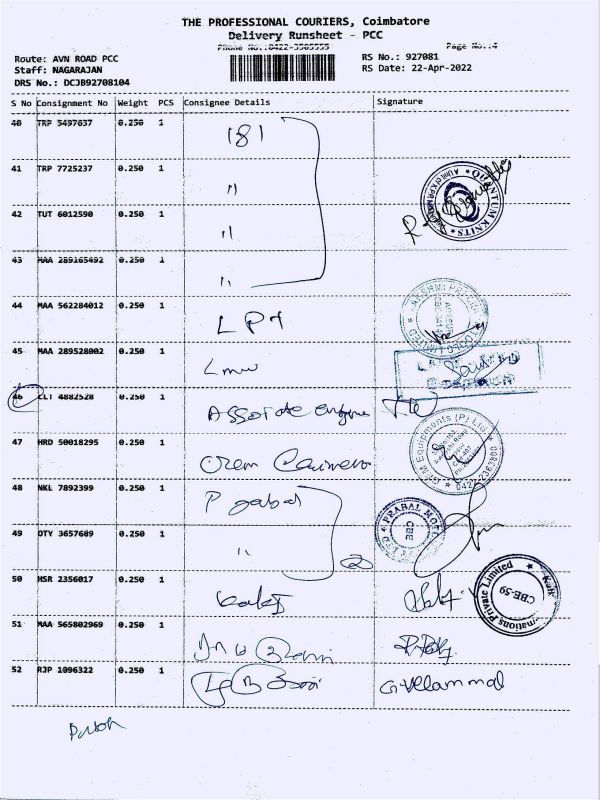 THE PROFESSIONAL COURIERS, Coimbatore
Delivery Runsheet - PCC
Phone No.:0422-3585555 Page No.:4
Route: AVN ROAD PCC RS No.: 927081
Staff: NAGARAJAN RS Date: 22-Apr-2022
DRS No.: DCJB92708104
S No Consignment No Weight PCS Consignee Details Signature
40 TRP 5497637 0.250 1 181
41 TRP 7725237 0.250 1 "
QUANTUM KNITS
42 TUT 6012590 0.250 1 "
43 MAA 289165492 0.250 1 "
44 MAA 562284012 0.250 1 LPT
45 MAA 289528002 0.250 1 Lmw
46 CLT 4882528 0.250 1 engine
47 HRD 50018295 0.250 1
Equipments (P) Ltd
48 NKL 7892399 0.250 1 P
49 OTY 3657689 0.250 1 " 2
CBE
50 HSR 2356017 0.250 1
Private Limited
CBE-59
51 MAA 565802969 0.250 1
52 RJP 1096322 0.250 1 G.Vellammal